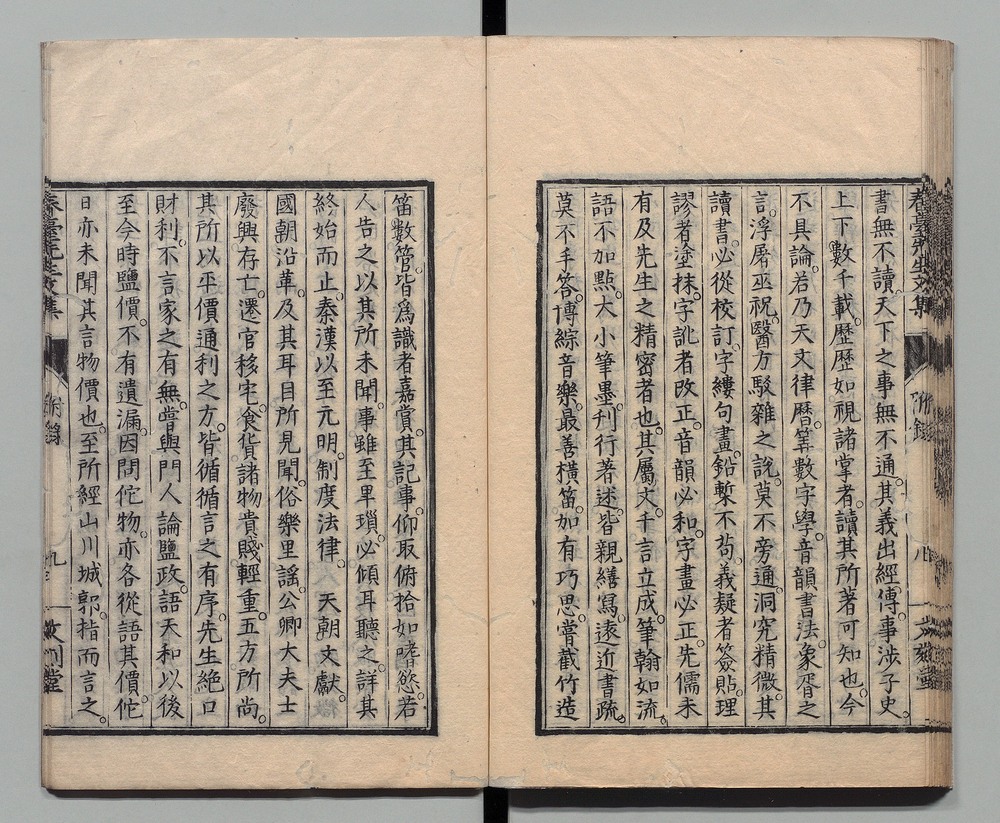 書無不讀。天下之事無不通。其義出經傳。事涉子史。
上下數千載。歷歷如視諸掌者。讀其所著可知也。今
不具論。若乃天文律曆筭數字學。音韻書法。象胥之
言。浮屠巫祝。醫方駁雜之說。莫不旁通。洞究精微。其
讀書。必從校訂。字縷句畫。鉛槧不苟。義疑者簽貼。理
謬者塗抹。字訛者改正。音韻必和。字畫必正。先儒未
有及先生之精密者也。其屬文。千言立成。筆翰如流。
語不加點。大小筆墨。刋行著述。皆親繕寫。遠近書疏。
莫不手答。博綜音樂。最善橫笛。如有巧思。嘗截竹造
笛數管。皆爲識者嘉賞。其記事。仰取俯拾如嗜慾。若
人告之以其所未聞。事雖至卑瑣。必傾耳聽之。詳其
終始而止。秦漢以至元明。制度法律。天朝文獻。
國朝沿革。及其耳目所見聞。俗樂里謡。公卿大夫士
廢興存亡。遷官移宅。食貨諸物貴賤。輕重。五方所尚。
其所以平價通利之方。皆循循言之有序。先生絕口
財利。不言家之有無。嘗與門人論鹽政。語天和以後
至今時鹽價。不有遺漏。因問佗物。亦各從語其價。佗
日亦未聞其言物價也。至所經山川城郭。指而言之。
春臺先生文集
附錄
八
春臺先生文集
附錄
九